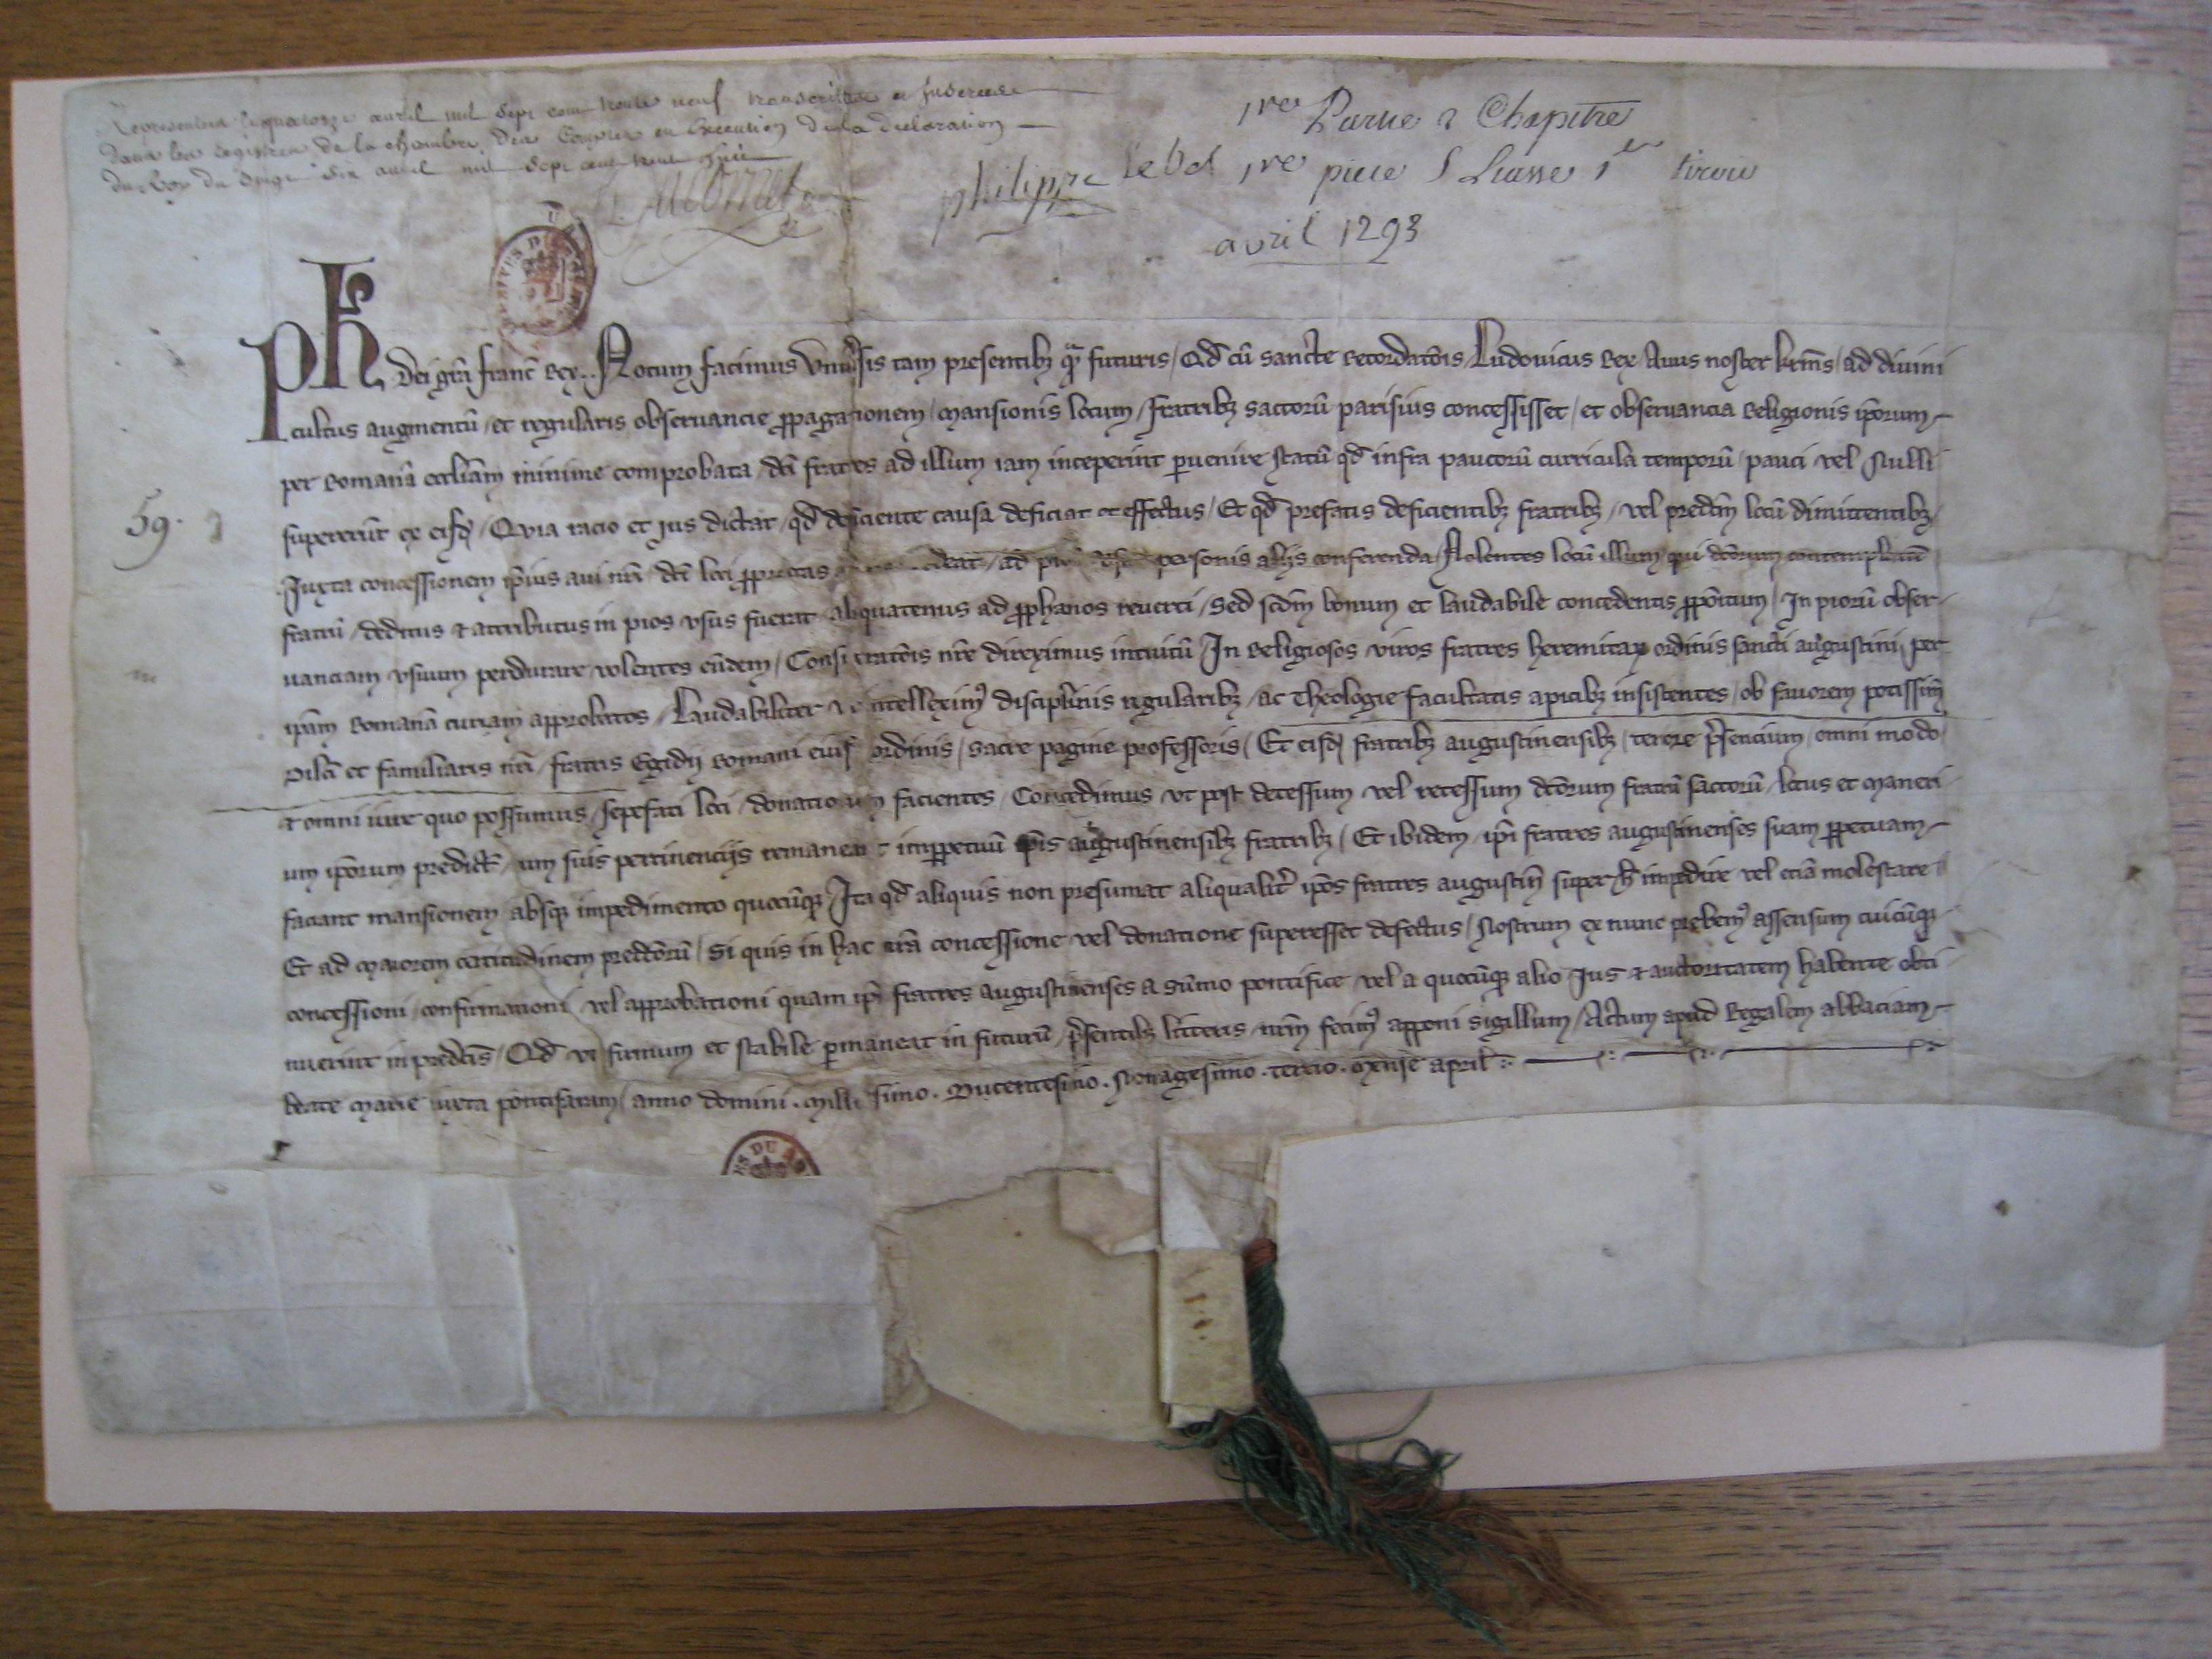 Representé le quatorze avril mil sept cent trente neuf transcrittes et Inserées
dans les registres de la chambre des Comptes en Execution de la declaration
du Roy du vingt six avril mil sept cent trente huit
1re Partie 2 Chapitre
philippe le bel 1re piece S Liasse 1er tiroir
avril 1293
59.
Ph dei grã franc̃ Rex.. Notum facimus Vniv̾sis tam presentibꝫ qͣ futuris / Qd̃ cũ sancte recordatõis Ludouicus Rex Auus noster kr̃ms / ad diuini
cultus augmentũ / et regularis obseruancie ꝓpagationem / mansionis locum / fratribꝫ saccorũ parisius concessisset / et obseruancia religionis ip̃orum
per Romanã eccl̃iam minime comprobata / dc̃i fratres ad illum iam inceperint ꝑuenire statũ qd̃ infra paucorũ curricula temporũ / pauci vel Nulli
supererũt ex eisdꝫ / Quia racio et ius dictat / qd̃ deficiente causa deficiat et effectus / Et qd̃ prefatis deficientibꝫ fratribꝫ / vel predc̃m locũ dimittentibꝫ
Juxta concessionem ip̃ius aui nr̃i dc̃i loci ꝓprietas personis alijs conferenda / Nolentes locũ illum qui dc̃orum contemplatiõe
fratrũ / deditus ⁊ attributus in pios vsus fuerat aliquatenus ad ꝓphanos reuerti / Sed scd̃m bonum et laudabile concedentis ꝓpõitum / In piorũ obser-
uanciam vsuum perdurare volentes eũdem / Considerat̃ois nr̃e direximus intuitũ In Religiosos viros fratres heremitaꝝ ordinis sancti augustini per
ip̃am Romanã curiam approbatos / Laudabiliter vt intelleximꝰ disciplinis regularibꝫ / ac Theologie facultatis apicibꝫ insistentes / ob fauorem potissim̃
Dilc̃i et familiaris nr̃i fratris Egidij Romani eiusdꝫ ordinis / sacre pagine professoris / Et eisdꝫ fratribꝫ augustinensibꝫ / tenore p̃sencium / omni modo
⁊ omni iure quo possumus / sepefati loci donationem facientes / Concedimus vt post decessum vel recessum dc̃orum fratrũ saccorũ / locus et maneri
um ip̃orum predict̃ / cum suis pertinencijs remaneat imꝑpetuũ ip̃is augustinensibꝫ fratribꝫ / Et ibidem ip̃i fratres augustinenses suam ꝑpetuam
faciant mansionem absqꝫ impedimento quocũqꝫ / Ita qd̃ aliquis non presumat aliqualit̾ ip̃os fratres augustin̄ super h̾ impedire vel eciã molestare
Et ad maiorem certitudinem predc̃orũ / Si quis in hac nr̃a concessione vel donatione superesset defectus / Nostrum ex nunc prebemꝰ assensum cuicũqꝫ
concessioni / confirmationi vel approbationi quam ip̃i fratres augustinenses a sũmo pontifice vel a quocũqꝫ alio Jus ⁊ auctoritatem habente obti
nuerint in predc̃is / Qd̃ vt firmum et stabile ꝑmaneat in futurũ / p̃sentibꝫ litteris nr̃m fecimꝰ apponi sigillum / Actum apud Regalem abbaciam
beate Marie iuxta pontisaram / anno domini . millesimo . Ducentesimo . Nonagesimo . tercio . Mense april̃ :.